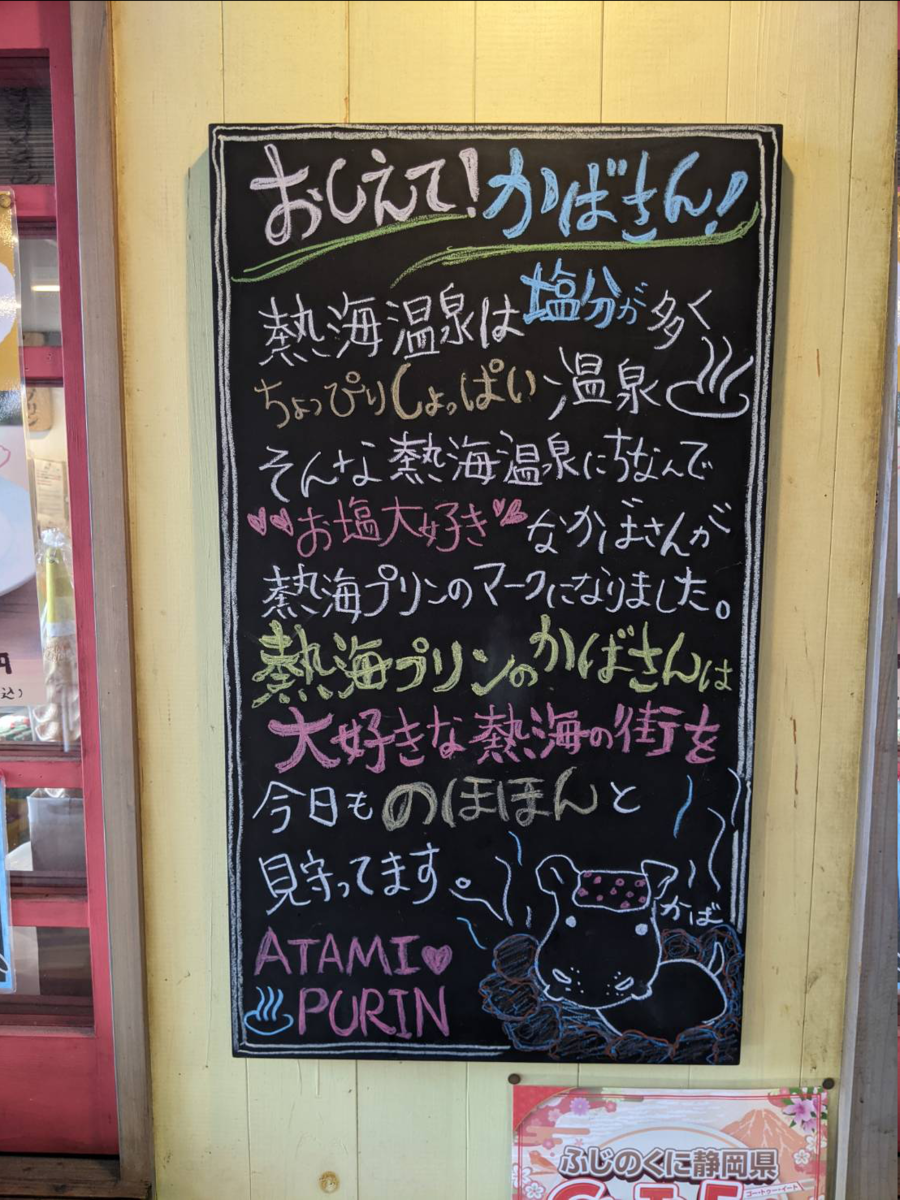 おしえて！かばさん！
熱海温泉は塩分が多く
ちょっぴりしょっぱい温泉♨
そんな熱海温泉にちなんで
♥♥お塩大好き♥♥なかばさんが
熱海プリンのマークになりました。
熱海プリンのかばさんは
大好きな熱海の街を
今日ものほほんと
見守ってます。
かば
ATAMI♥
♨PURIN
ふじのくに静岡県